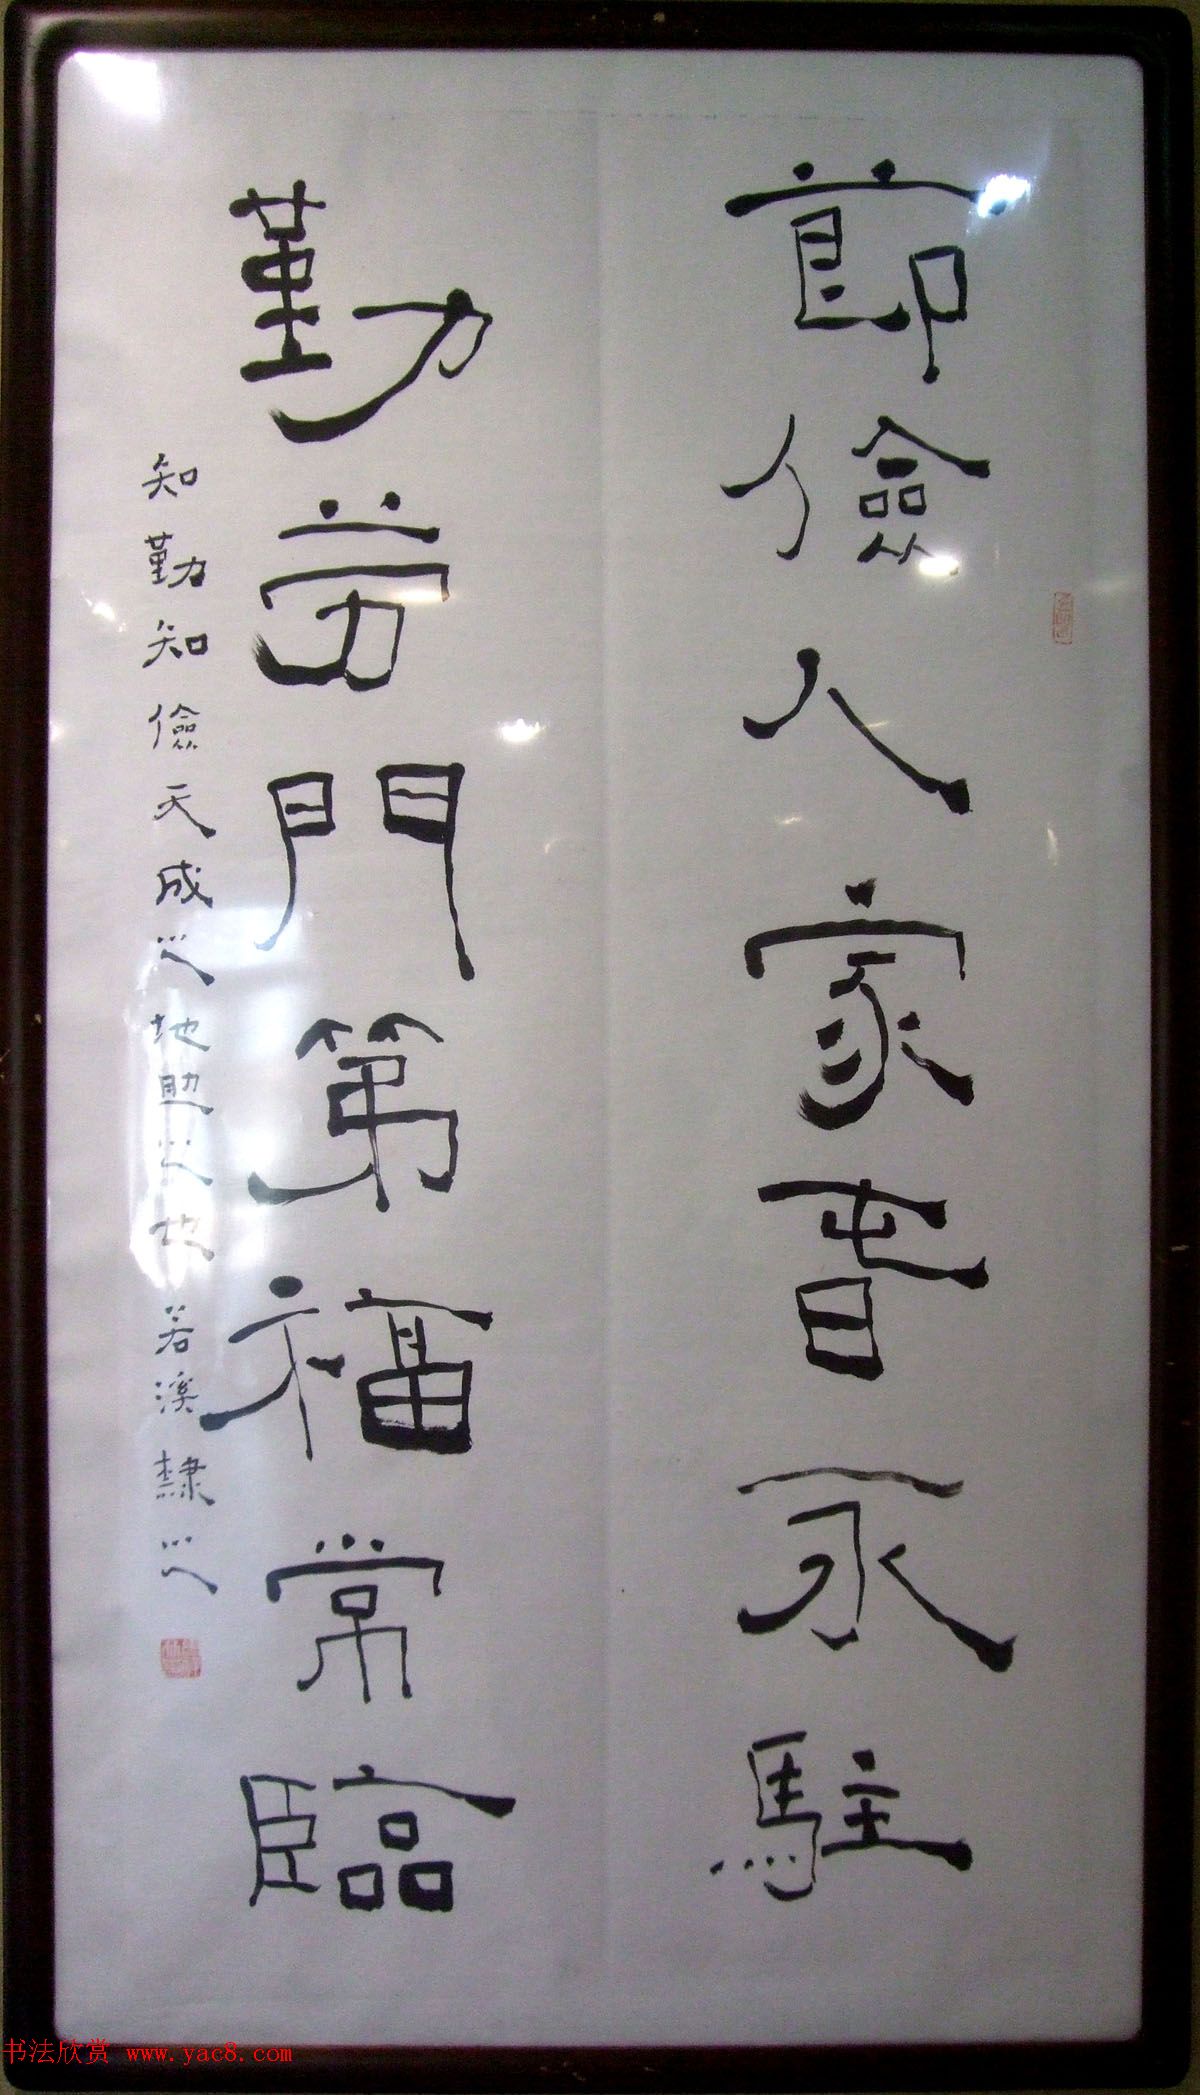 節儉人家春永駐
勤勞門第福常臨
知勤知儉天成之地助之也 若溪隸之
书法欣赏 www.yac8.com